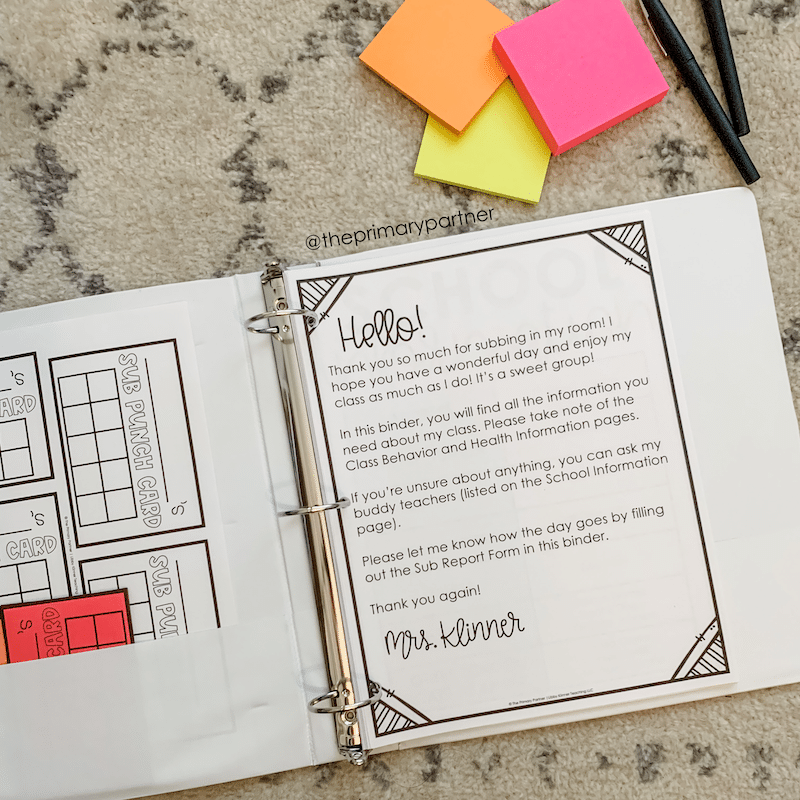 @theprimarypartner
Hello!
Thank you so much for subbing in my room! I
hope you have a wonderful day and enjoy my
class as much as I do! It's a sweet group!
In this binder, you will find all the information you
need about my class. Please take note of the
Class Behavior and Health Information pages.
If you're unsure about anything, you can ask my
buddy teachers (listed on the School Information
page).
Please let me know how the day goes by filling
out the Sub Report Form in this binder.
Thank you again!
Mrs. Klinner
'S
CARD
'S
SUB PUNCH CARD
'S
CARD
SUB PUNCH
'S
CARD
SCHOOL